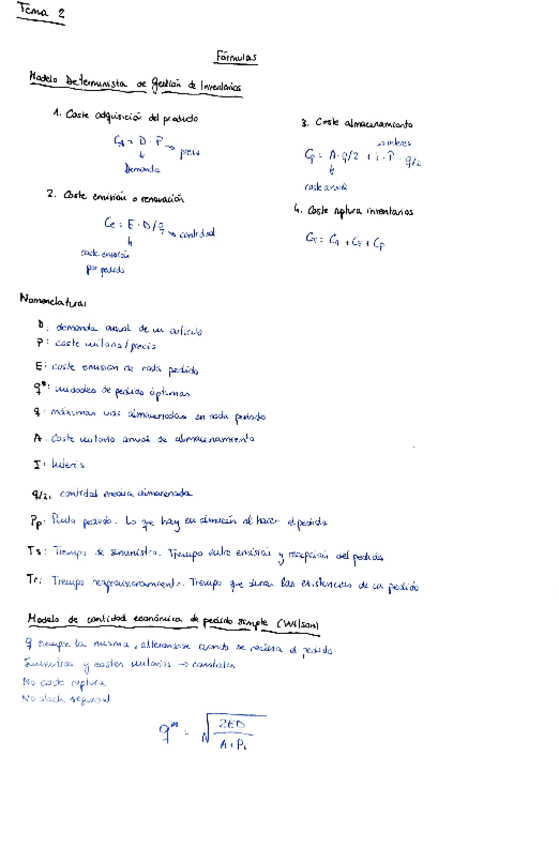 Tema 2
Fórmulas
Modelo Determinista de Gestión de Inventarios
1. Coste adquisición del producto
CA = D · P → precio
Demanda
2. Coste emisión o renovación
CE = E · D/q → cantidad
coste emisión
por pedido
3. Coste almacenamiento
interes
CP = A · q/2 + i · P · q/2
coste anual
4. Coste ruptura inventarios
CT = CA + CE + CP
Nomenclatura:
D: demanda anual de un artículo
P: coste unitario/precio
E: coste emisión de cada pedido
q*: unidades de pedido óptimas
q: máximas uds almacenadas en cada periodo
A: Coste unitario anual de almacenamiento
I: Interés
q/2: cantidad media almacenada
Pp: Punto pedido. Lo que hay en almacén al hacer el pedido
Ts: Tiempo de suministro. Tiempo entre emisión y recepción del pedido
Tr: Tiempo reaprovisionamiento. Tiempo que duran las existencias de un pedido
Modelo de cantidad económica de pedido simple (Wilson)
q siempre la misma, cuando se realiza el pedido
y costes unitarios → constantes
No coste ruptura
No stock seguridad
q* = √ 2ED / A+Pi